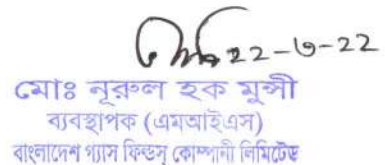 ২২-৩-২২
মোঃ নূরুল হক মুন্সী
ব্যবস্থাপক (এমআইএস)
বাংলাদেশ গ্যাস ফিল্ডস্ কোম্পানী লিমিটেড